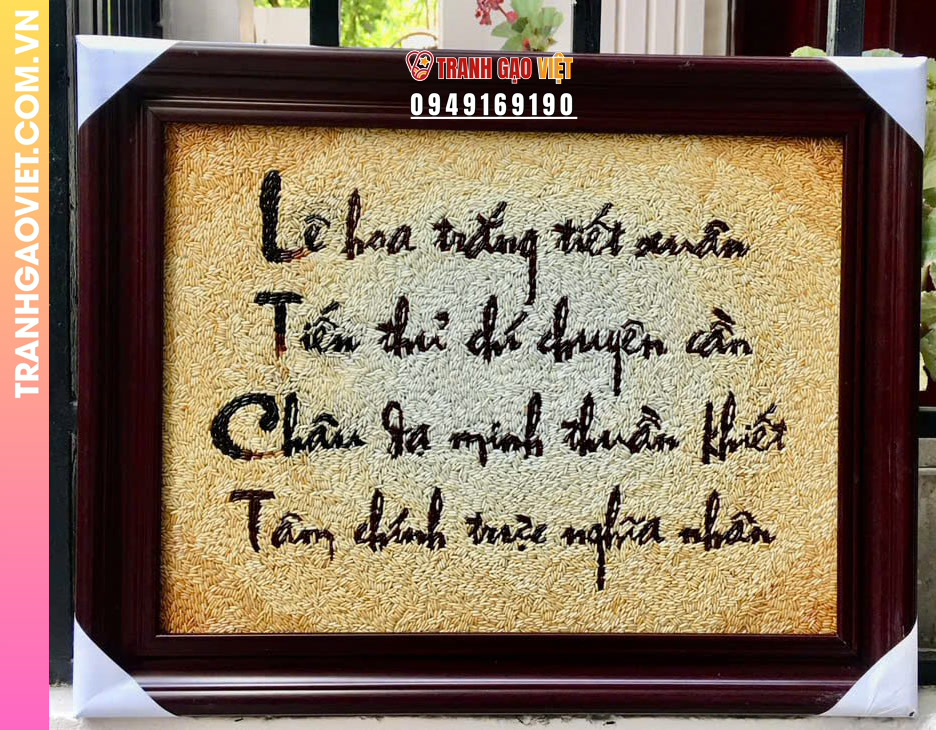 TRANH GẠO VIỆT
0949169190
TRANHGAOVIET.COM.VN
Lê hoa trắng tiết xuân
Tiến thủ chí chuyên cần
Châu dạ minh thuần khiết
Tâm chính trực nghĩa nhân